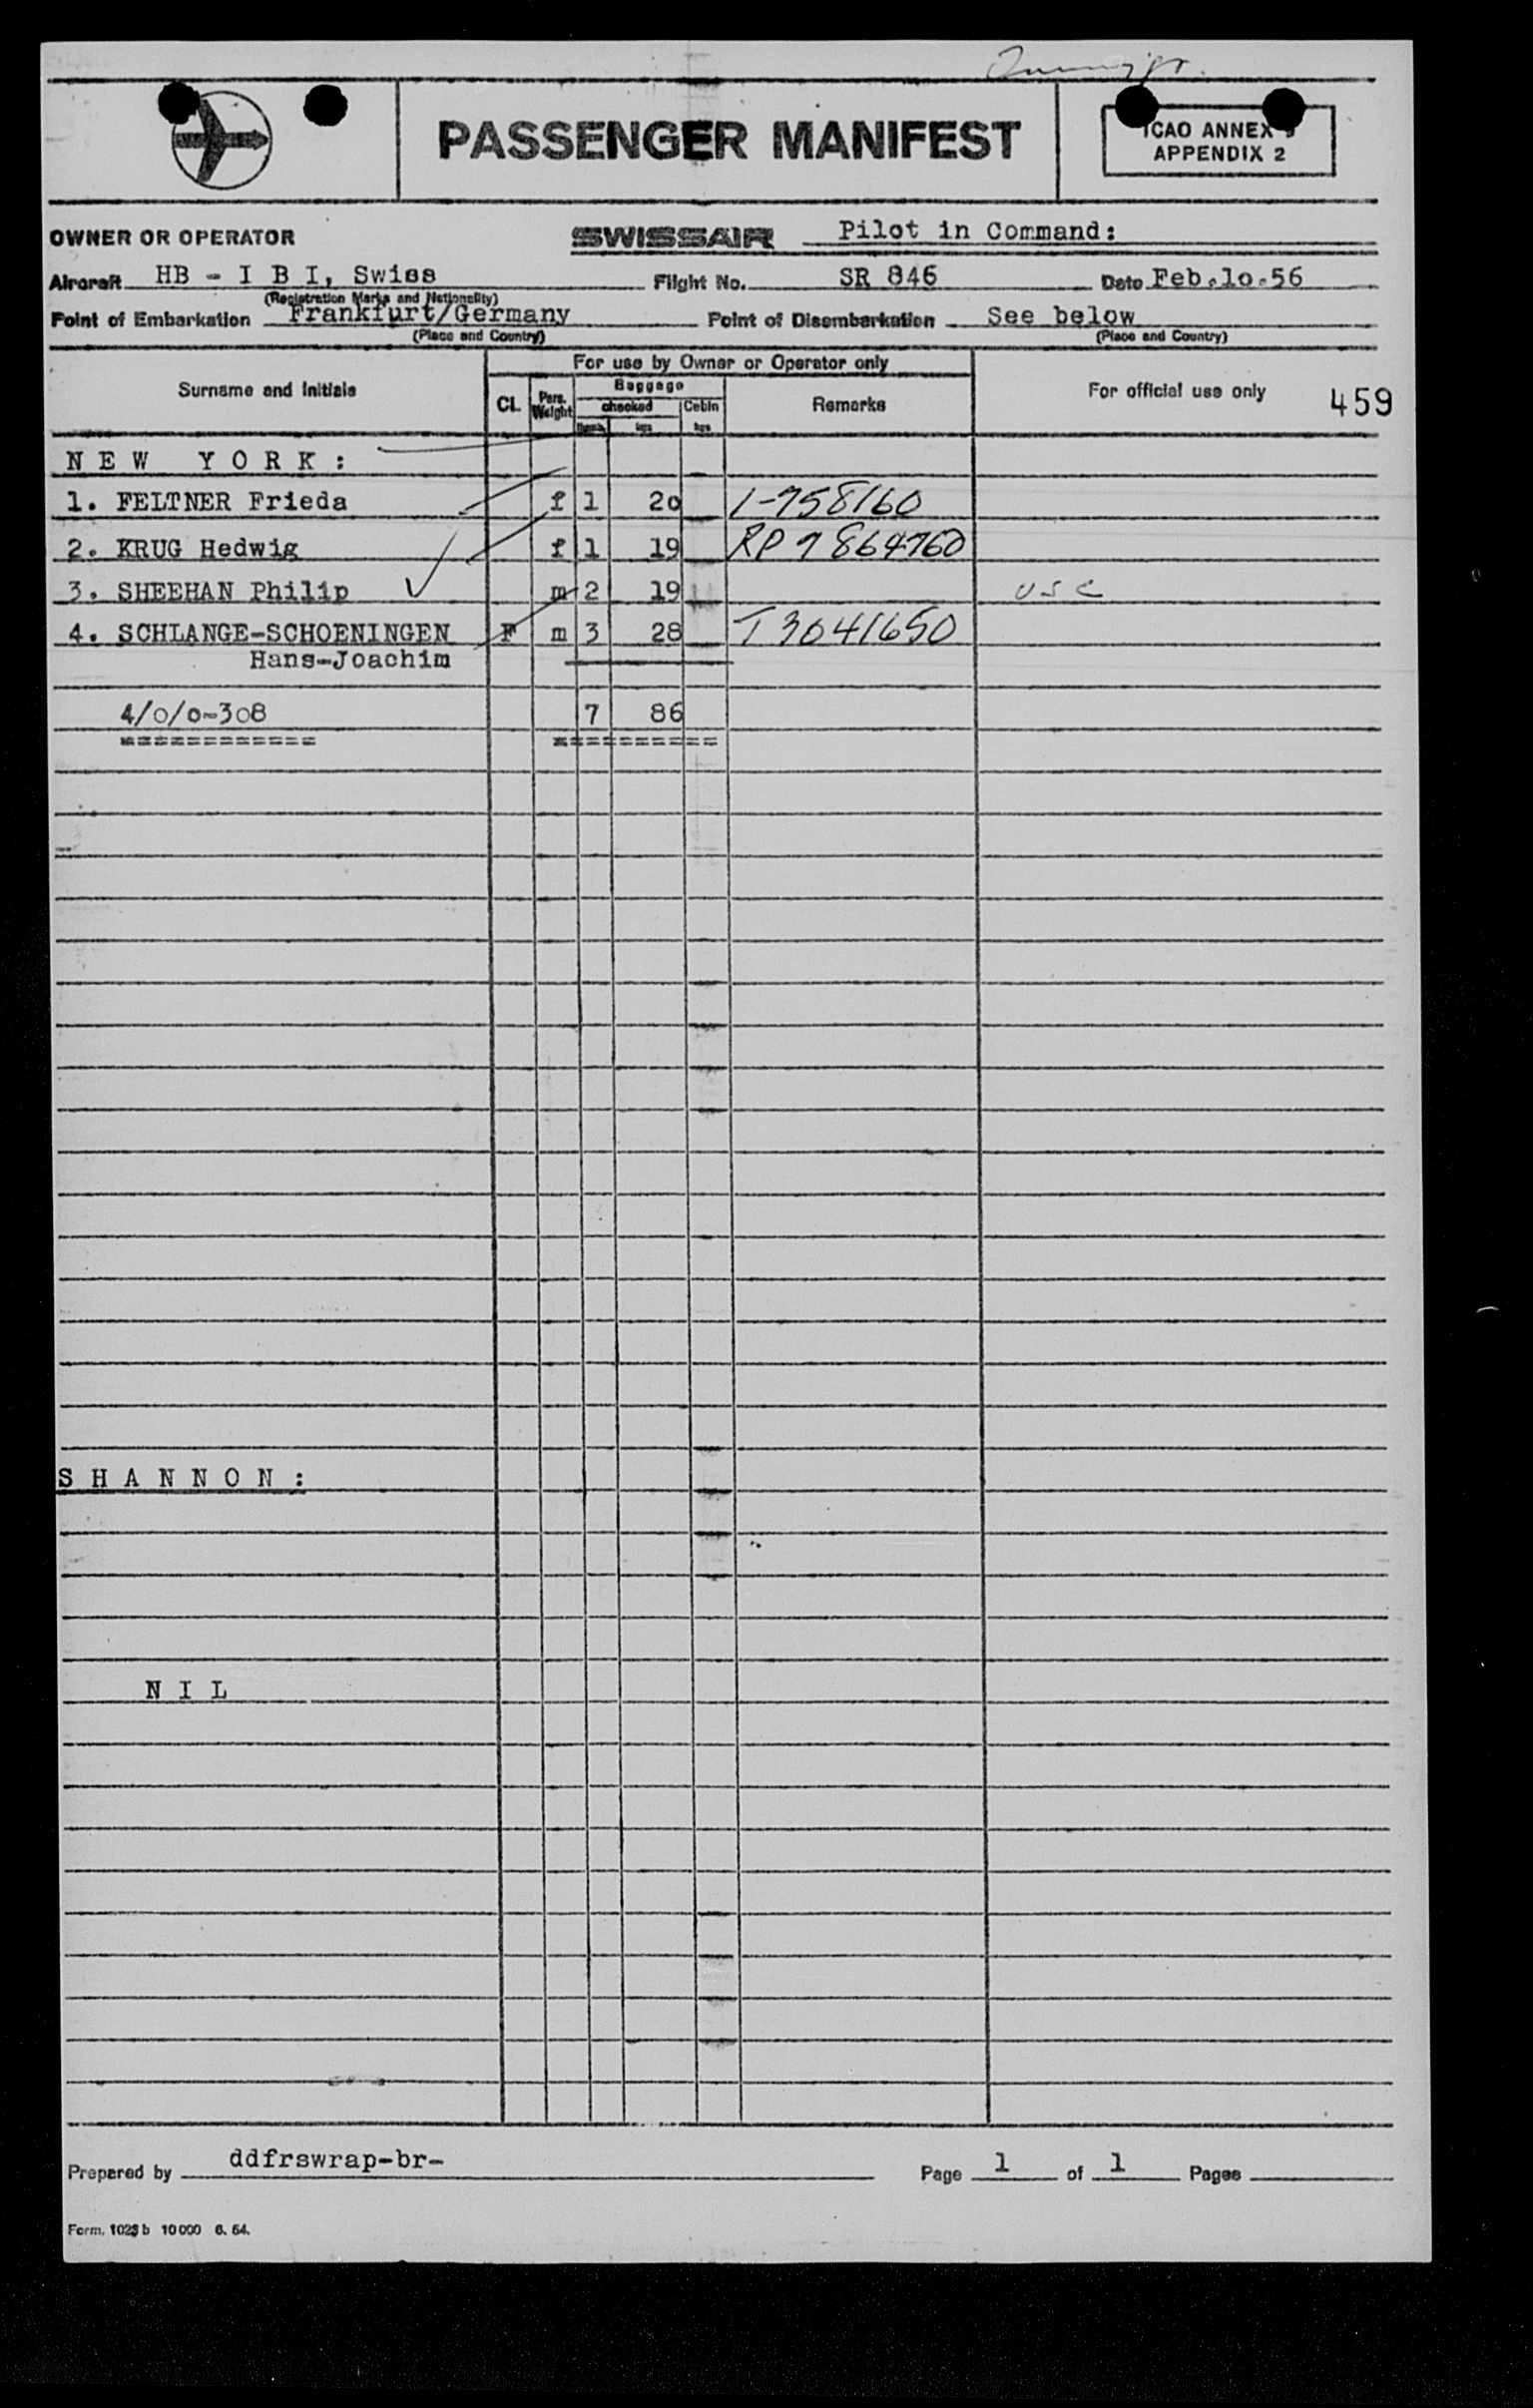 PASSENGER MANIFEST
ICAO ANNEX 9
APPENDIX 2
OWNER OR OPERATOR SWISSAIR Pilot in Command:
Aircraft HB - I B I, Swiss Flight No. SR 846 Date Feb.lo.56
(Registration Marks and Nationality)
Point of Embarkation Frankfurt/Germany Point of Disembarkation See below
(Place and Country) (Place and Country)
For use by Owner or Operator only
Surname and Initials Cl. Pers. Weight Baggage checked Cabin kgs Remarks For official use only 459
N E W Y O R K :
1. FELTNER Frieda f 1 2o 1-758160
2. KRUG Hedwig f 1 19 RP 7864760
3. SHEEHAN Philip m 2 19 USC
4. SCHLANGE-SCHOENINGEN F m 3 28 T3041650
Hans-Joachim
4/o/o-3o8 7 86
============ ==========
S H A N N O N :
N I L
Prepared by ddfrswrap-br- Page 1 of 1 Pages
Form. 1023 b 10 000 6. 54.